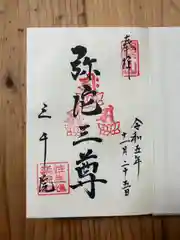 奉拝
令和五年
十二月二十五日
弥陀三尊
三千院